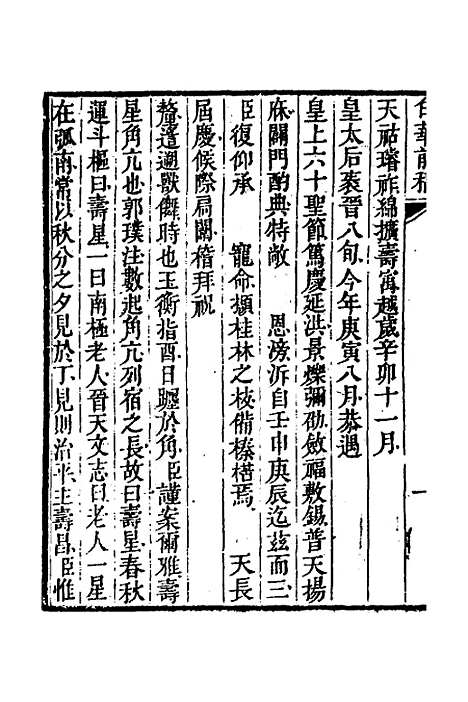 天祜璿祚綿擴壽㝢越歲辛卯十一月
皇太后袠晉八旬今年庚寅八月恭遇
皇上六十聖節篤慶延洪景爍彌劭斂福敷錫普天揚
庥闢門酌典特敞　恩滂泝自壬申庚辰迄茲而三
臣復仰承　寵命擷桂林之枝備榛楛焉　天長
屆慶候際扃闈稽拜祝
釐遣遡獸儛時也玉衡指酉日躔於角臣謹案爾雅壽
星角亢也郭璞注數起角亢列宿之長故曰壽星春秋
運斗樞曰壽星一曰南極老人晉天文志曰老人一星
在弧南常以秋分之夕見於丁見則治平主壽昌臣惟